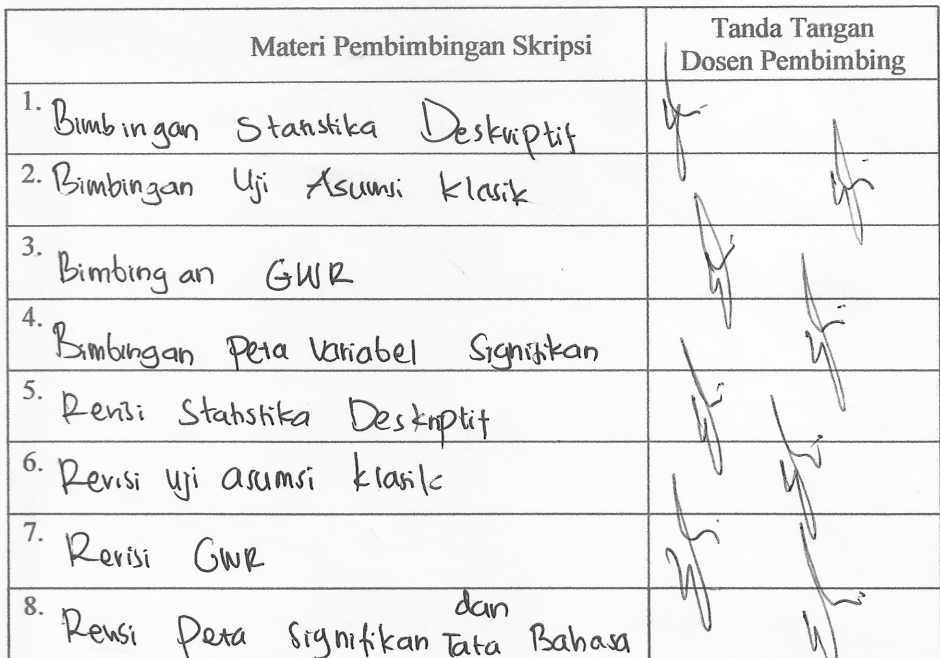 Materi Pembimbingan Skripsi
Tanda Tangan
Dosen Pembimbing
1. Bimbingan Statistika Deskriptif
2. Bimbingan Uji Asumsi Klasik
3. Bimbingan GWR
4. Bimbingan Peta Variabel Signifikan
5. Revisi Statistika Deskriptif
6. Revisi uji asumsi klasik
7. Revisi GWR
8. Revisi Peta Signifikan dan Tata Bahasa